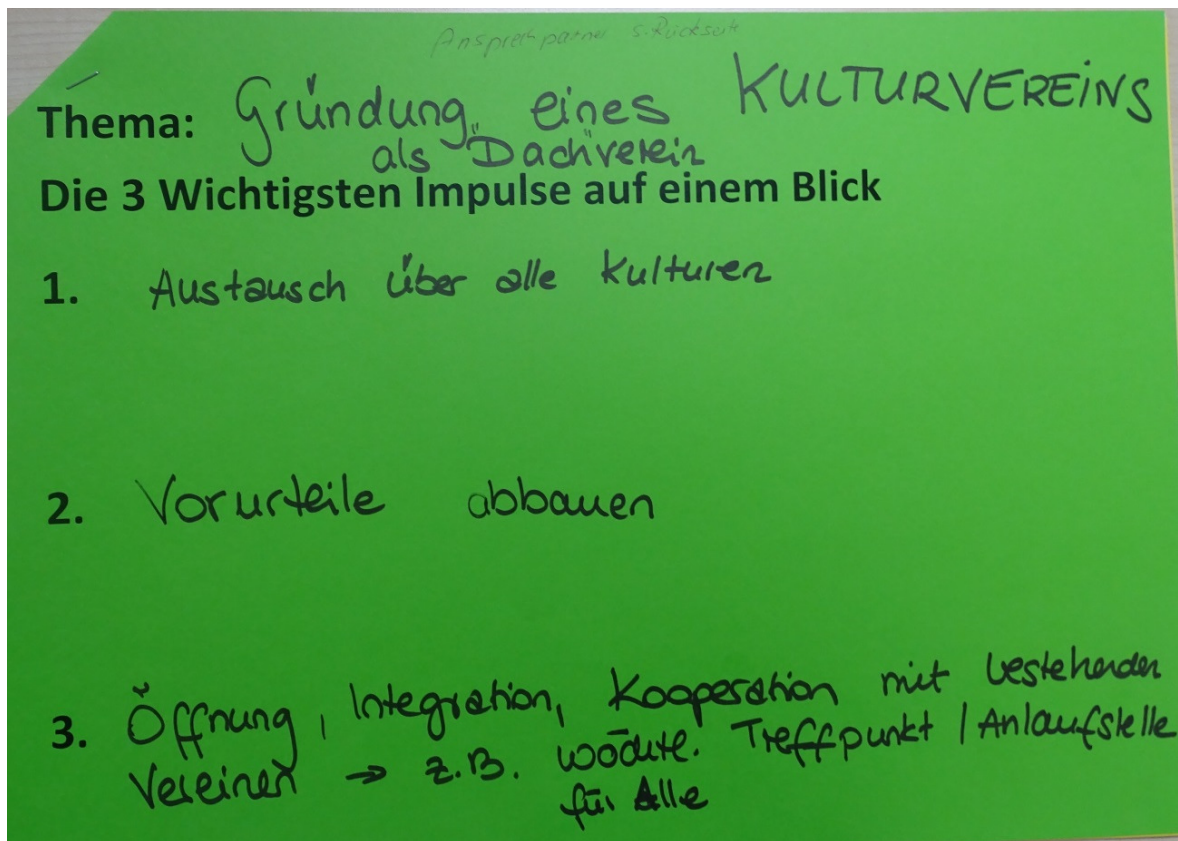 Ansprechpartner s. Rückseite
Thema: Gründung eines KULTURVEREINS
als "Dachverein"
Die 3 Wichtigsten Impulse auf einem Blick
1. Austausch über alle Kulturen
2. Vorurteile abbauen
3. Öffnung, Integration, Kooperation mit bestehenden
Vereinen → z.B. wöchtl. Treffpunkt / Anlaufstelle
für Alle